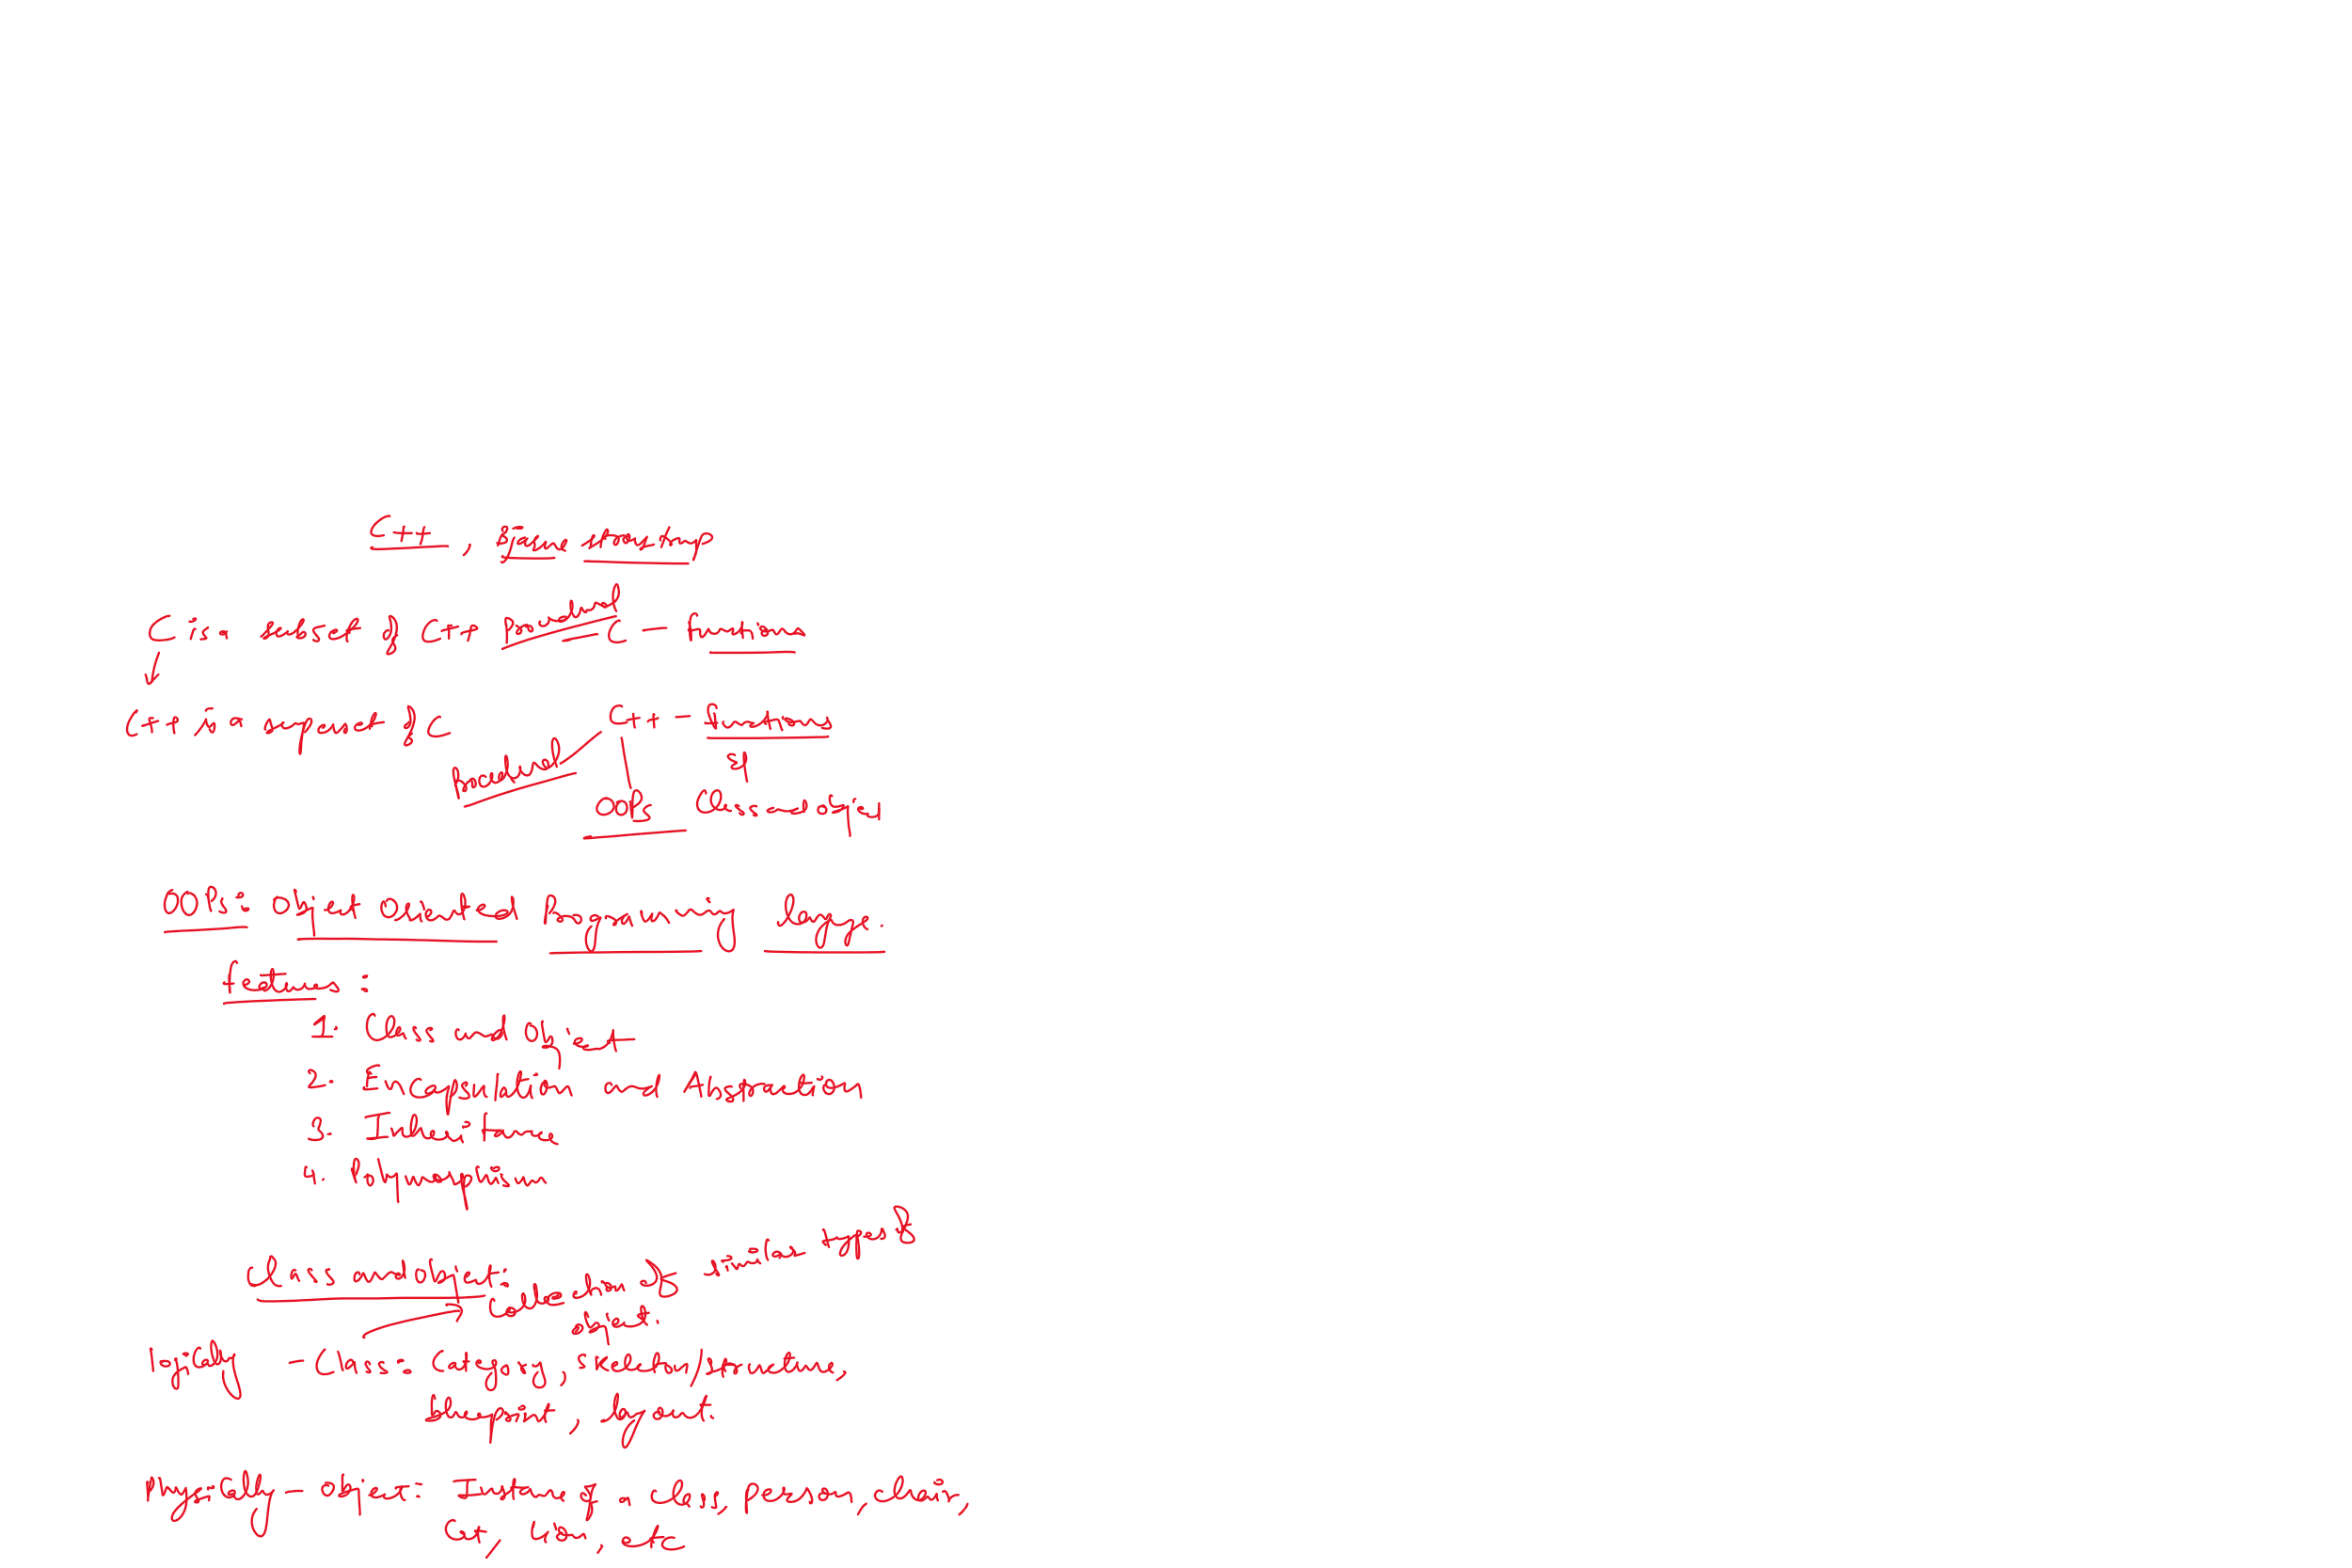 C++, Bjarne stroustrup
C is a subset of C++ Procedural - C - functions
C++ is a superset of C
C++ - functions
Procedural
OOPs Class and object
OOPs: Object Oriented Programming langg.
features:
1. Class and Object
2. Encapsulation and Abstraction
3. Inheritance
4. Polymorphism
Class and object:
Collection of similar types of
object.
logically - Class: Category, skeleton/structure,
blueprint, layout.
Physically - object: Instance of a class, person, chair,
Cat, lion, etc